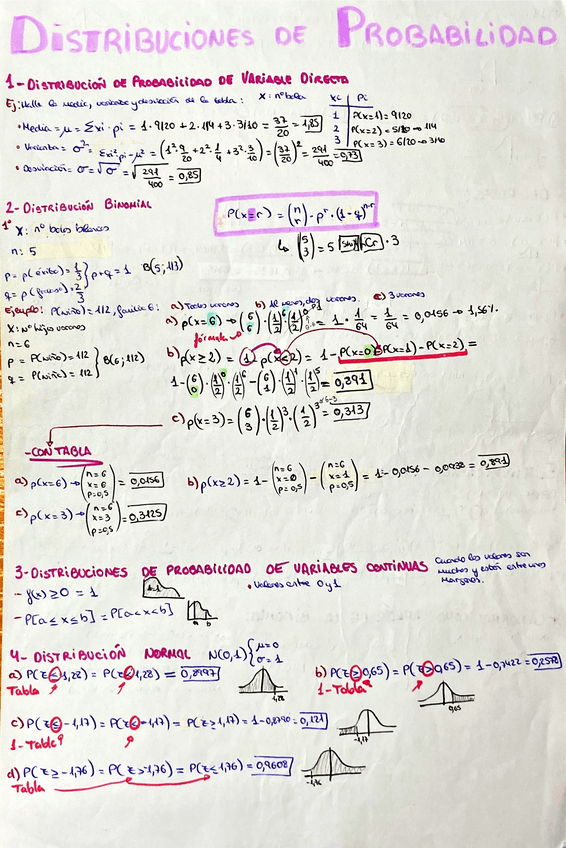 DISTRIBUCIONES DE PROBABILIDAD
1-DISTRIBUCIÓN DE PROBABILIDAD DE VARIABLE DIRECTA
Ej: Halla la media, varianza y desviación de la tabla: X: nº bola
xi | Pi
1 | P(x=1) = 9/20
2 | P(x=2) = 5/20 → 1/4
3 | P(x=3) = 6/20 → 3/10
• Media = μ = Σxi·pi = 1·9/20 + 2·1/4 + 3·3/10 = 37/20 = 1,85
• Varianza = σ² = Σxi²·pi - μ² = (1²·9/20 + 2²·1/4 + 3²·3/10) = (37/20)² = 291/400 = 0,73
• Desviación = σ = √σ² = √291/400 = 0,85
2-DISTRIBUCIÓN BINOMIAL
P(x=r) = (n r) · p^r · (1-q)^n-r
1º X: nº bolas blancas
(5 3) = 5 nCr · 3
n: 5
p = p(éxito) = 1/3 } p+q = 1 B(5, 1/3)
q = p(fracaso) = 2/3
Ejemplo: P(niño) = 1/2, familia 6: a) Todos varones b) dos varones. c) 3 varones
X: nº hijos varones
n = 6
p = P(niño) = 1/2 } B(6, 1/2)
q = P(niña) = 1/2
a) p(x=6) → (6 6)·(1/2)^6·(1/2)^0 = 1 · 1/64 = 1/64 = 0,0156 → 1,56%
fórmula
b) p(x≥2) = 1 - p(x<2) = 1 - P(x=0) P(x=1) - P(x=2) =
1-(6 0)·(1/2)^0·(1/2)^6 - (6 1)·(1/2)^1·(1/2)^5 = 0,891
c) p(x=3) = (6 3)·(1/2)^3·(1/2)^3 6-3 = 0,313
-CON TABLA
a) p(x=6) → (n=6 x=6 p=0,5) = 0,0156
b) p(x≥2) = 1 - (n=6 x=0 p=0,5) - (n=6 x=1 p=0,5) = 1 - 0,0156 - 0,0938 = 0,891
c) p(x=3) → (n=6 x=3 p=0,5) = 0,3125
3-DISTRIBUCIONES DE PROBABILIDAD DE VARIABLES CONTINUAS Cuando los valores son muchos y están entre unos márgenes.
- f(x) ≥ 0 = 1 A=1 • Valores entre 0 y 1
- P[a ≤ x ≤ b] = P[a < x < b] a b
4- DISTRIBUCIÓN NORMAL N(0,1) { μ=0 σ=1
a) P(z ≤ 1,28) = P(z < 1,28) = 0,8997 1,28
Tabla
b) P(z ≥ 0,65) = P(z > 0,65) = 1 - 0,7422 = 0,2578
1-Tabla 0,65
c) P(z ≤ -1,17) = P(z < -1,17) = P(z ≥ 1,17) = 1 - 0,8790 = 0,121 -1,17
1-Tabla
d) P(z ≥ -1,76) = P(z > -1,76) = P(z ≤ 1,76) = 0,9608 -1,76
Tabla